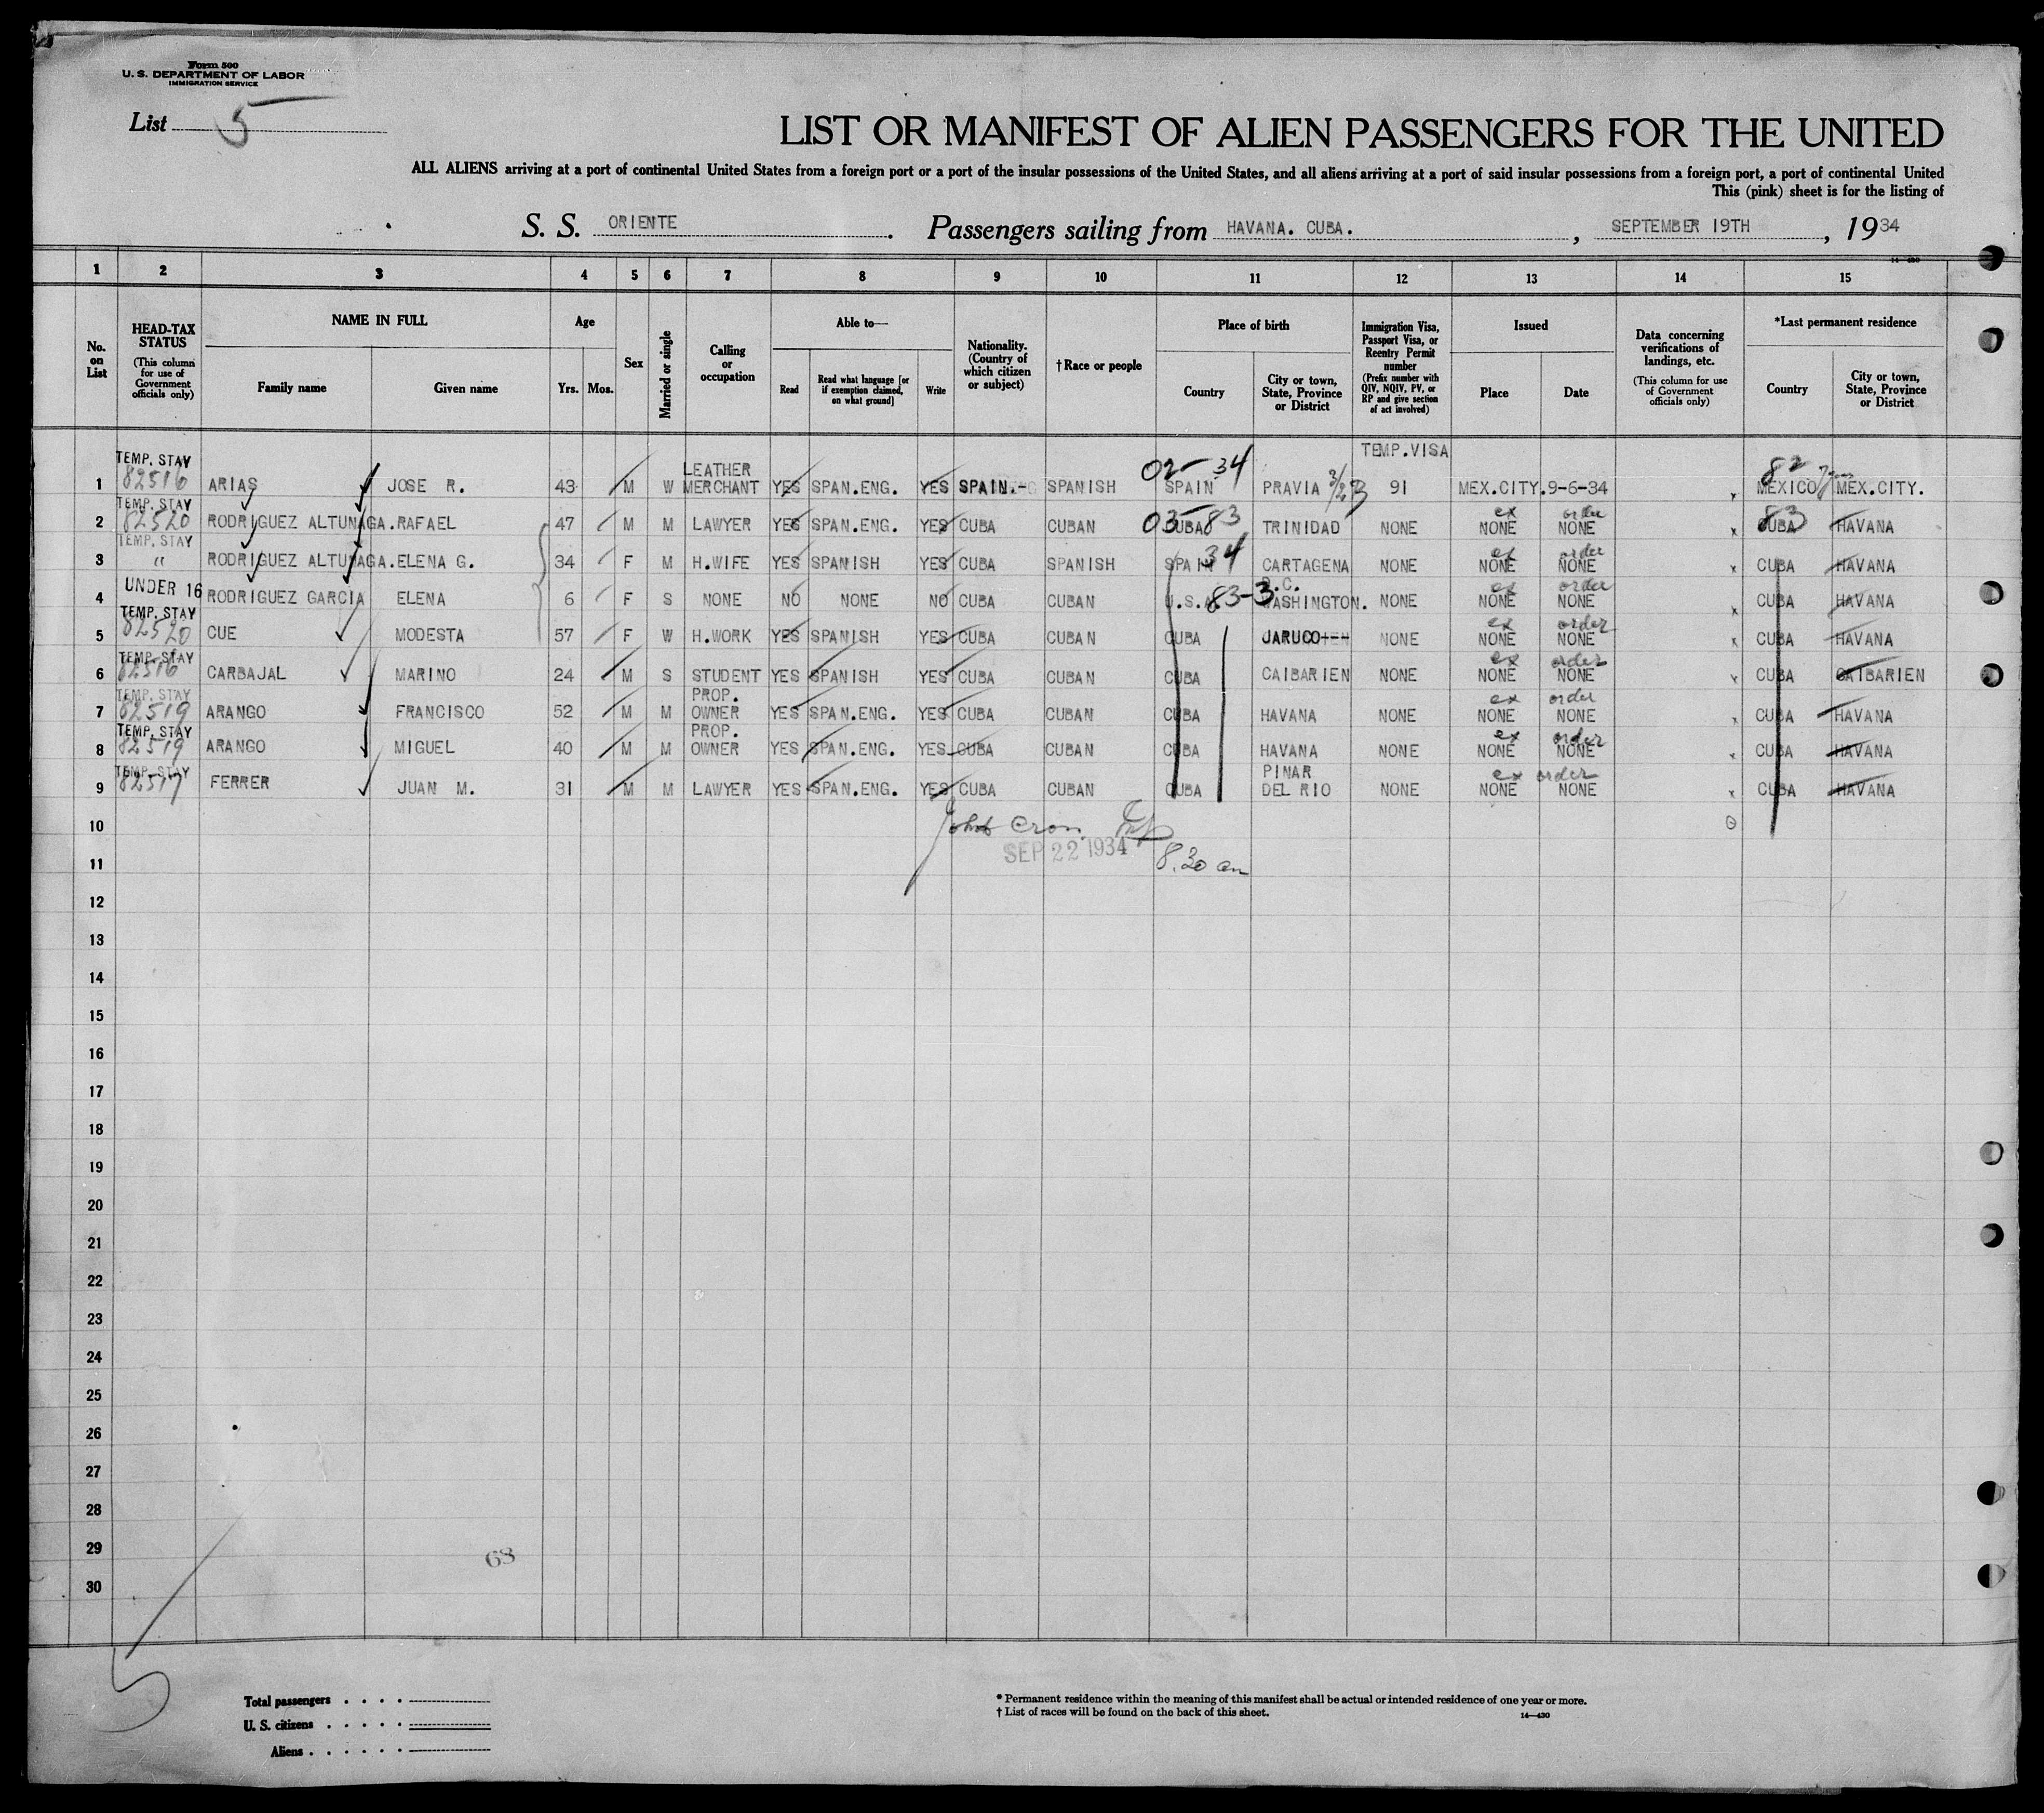 Form 500
U. S. DEPARTMENT OF LABOR
IMMIGRATION SERVICE
List 5
LIST OR MANIFEST OF ALIEN PASSENGERS FOR THE UNITED
ALL ALIENS arriving at a port of continental United States from a foreign port or a port of the insular possessions of the United States, and all aliens arriving at a port of said insular possessions from a foreign port, a port of continental United
This (pink) sheet is for the listing of
S. S. ORIENTE. Passengers sailing from HAVANA. CUBA. , SEPTEMBER 19TH , 1934
1 2 3 4 5 6 7 8 9 10 11 12 13 14 15
No. on List
HEAD-TAX STATUS
(This column for use of Government officials only)
NAME IN FULL
Family name Given name
Age
Yrs. Mos.
Sex
Married or single
Calling or occupation
Able to—
Read
Read what language [or if exemption claimed, on what ground]
Write
Nationality. (Country of which citizen or subject)
†Race or people
Place of birth
Country
City or town, State, Province or District
Immigration Visa, Passport Visa, or Reentry Permit number
(Prefix number with QIV, NQIV, PV, or RP and give section of act involved)
Issued
Place Date
Data concerning verifications of landings, etc.
(This column for use of Government officials only)
*Last permanent residence
Country
City or town, State, Province or District
TEMP. STAY LEATHER 02-34 TEMP.VISA 82
1 82516 ARIAS JOSE R. 43 M W MERCHANT YES SPAN.ENG. YES SPAIN. SPANISH SPAIN PRAVIA 91 MEX.CITY. 9-6-34 MEXICO MEX.CITY.
TEMP. STAY ex order
2 82520 RODRIGUEZ ALTUNAGA. RAFAEL 47 M M LAWYER YES SPAN.ENG. YES CUBA CUBAN 03 CUBA 83 TRINIDAD NONE NONE NONE 83 CUBA HAVANA
TEMP. STAY 34 ex order
3 " RODRIGUEZ ALTUNAGA. ELENA G. 34 F M H.WIFE YES SPANISH YES CUBA SPANISH SPAIN CARTAGENA NONE NONE NONE CUBA HAVANA
UNDER 16 D.C. ex order
4 RODRIGUEZ GARCIA ELENA 6 F S NONE NO NONE NO CUBA CUBAN U.S.A. 83-3 WASHINGTON. NONE NONE NONE CUBA HAVANA
TEMP. STAY ex order
5 82520 CUE MODESTA 57 F W H.WORK YES SPANISH YES CUBA CUBAN CUBA JARUCO NONE NONE NONE CUBA HAVANA
TEMP. STAY ex order
6 82516 CARBAJAL MARINO 24 M S STUDENT YES SPANISH YES CUBA CUBAN CUBA CAIBARIEN NONE NONE NONE CUBA CAIBARIEN
TEMP. STAY PROP. ex order
7 82519 ARANGO FRANCISCO 52 M M OWNER YES SPAN.ENG. YES CUBA CUBAN CUBA HAVANA NONE NONE NONE CUBA HAVANA
TEMP. STAY PROP. ex order
8 82519 ARANGO MIGUEL 40 M M OWNER YES SPAN.ENG. YES CUBA CUBAN CUBA HAVANA NONE NONE NONE CUBA HAVANA
TEMP. STAY PINAR ex order
9 82517 FERRER JUAN M. 31 M M LAWYER YES SPAN.ENG. YES CUBA CUBAN CUBA DEL RIO NONE NONE NONE CUBA HAVANA
10
SEP 22 1934
11 8.30 am
12
13
14
15
16
17
18
19
20
21
22
23
24
25
26
27
28
29 68
30
5
Total passengers
U. S. citizens
Aliens
* Permanent residence within the meaning of this manifest shall be actual or intended residence of one year or more.
† List of races will be found on the back of this sheet. 14—430